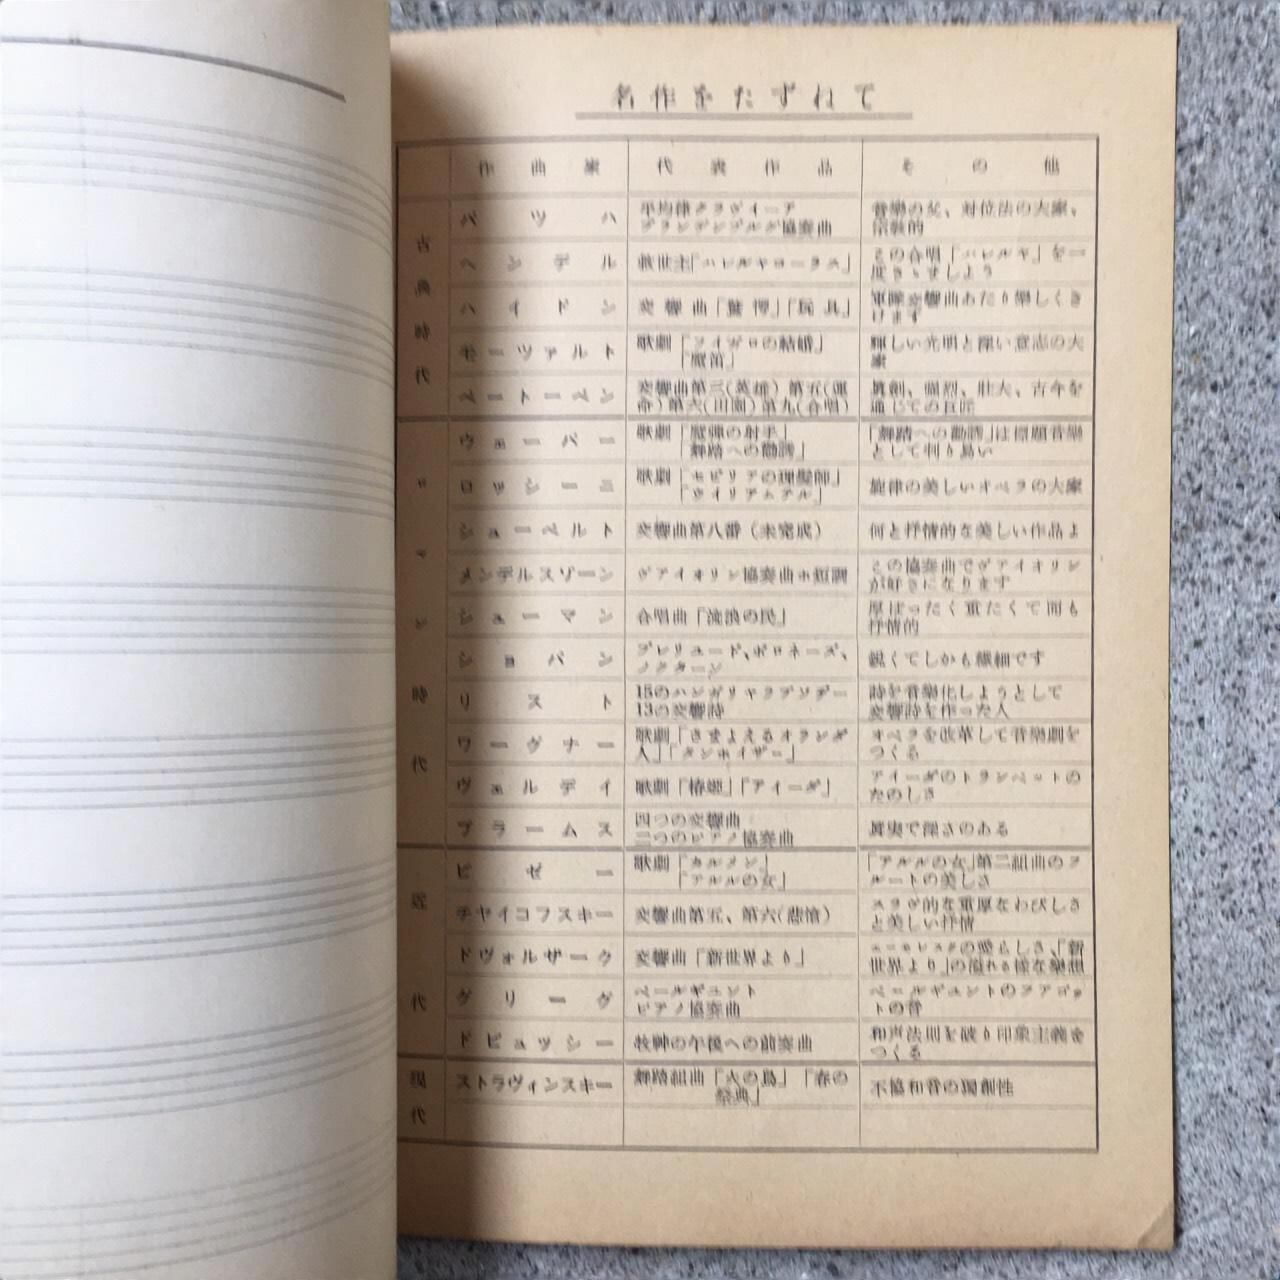 名作をたずねて
作曲家 代表作品 その他
古典時代
バツハ 平均律クラヴイーア
ブランデンブルグ協奏曲 音樂の父、対位法の大家、
宗教的
ヘンデル 救世主「ハレルヤコーラス」 この合唱「ハレルヤ」を一
度きゝましよう
ハイドン 交響曲「驚愕」「玩具」 軍隊交響曲あたり樂しくき
けます
モーツァルト 歌劇「フイガロの結婚」
「魔笛」 輝しい光明と深い意志の大
家
ベートーベン 交響曲第三(英雄)第五(運
命)第六(田園)第九(合唱) 眞劍、强烈、壮大、古今を
通じての巨匠
ロマン時代
ウェーバー 歌劇「魔弾の射手」
「舞踏への勧誘」 「舞踏への勧誘」は標題音樂
として判り易い
ロッシーニ 歌劇「セビリアの理髪師」
「ウイリアムテル」 旋律の美しいオペラの大家
シューベルト 交響曲第八番(未完成) 何と抒情的な美しい作品よ
メンデルスゾーン ヴァイオリン協奏曲ホ短調 この協奏曲でヴァイオリン
が好きになります
シューマン 合唱曲「流浪の民」 厚ぼったく重たくて而も
抒情的
ショパン プレリュード、ポロネーズ、
ノクターン 鋭くてしかも繊細です
リスト 15のハンガリヤラプソデー
13の交響詩 詩を音樂化しようとして
交響詩を作った人
ワーグナー 歌劇「さまよえるオランダ
人」「タンホイザー」 オペラを改革して音樂劇を
つくる
ヴェルデイ 歌劇「椿姫」「アイーダ」 アイーダのトランペットの
たのしさ
ブラームス 四つの交響曲
二つのピアノ協奏曲 眞実で深さのある
近代
ビゼー 歌劇「カルメン」
「アルルの女」 「アルルの女」第二組曲のフ
ルートの美しさ
チヤイコフスキー 交響曲第五、第六(悲愴) スラヴ的な重厚なわびしさ
と美しい抒情
ドヴォルザーク 交響曲「新世界より」 の愛らしさ、「新
世界より」の溢れる様な樂想
グリーグ ペールギュント
ピアノ協奏曲 ペールギュントのファゴッ
トの音
ドビュッシー 牧神の午後への前奏曲 和声法則を破り印象主義を
つくる
現代
ストラヴィンスキー 舞踏組曲「火の鳥」「春の
祭典」 不協和音の獨創性